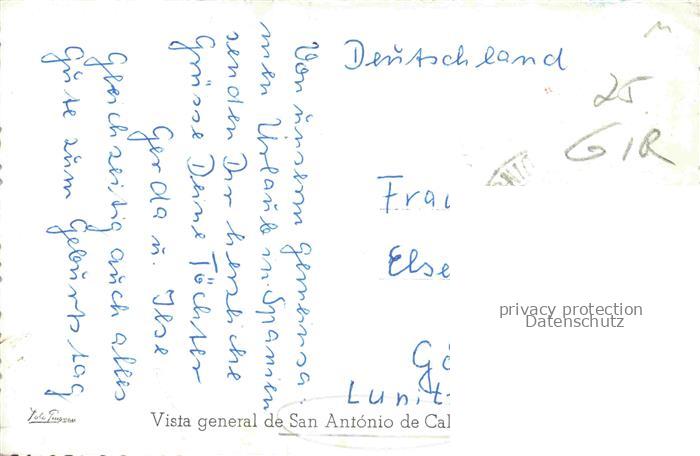 Von unsern gemeinsa-
men Urlaub in Spanien
senden Dir herzliche
Grüsse Deine Töchter
Gerda u. Ilse
Gleichzeitig auch alles
Gute zum Geburtstag
Deutschland
25.
GIR
Frau
Else
Gö
Lunit
privacy protection
Datenschutz
Vista general de San António de Cal